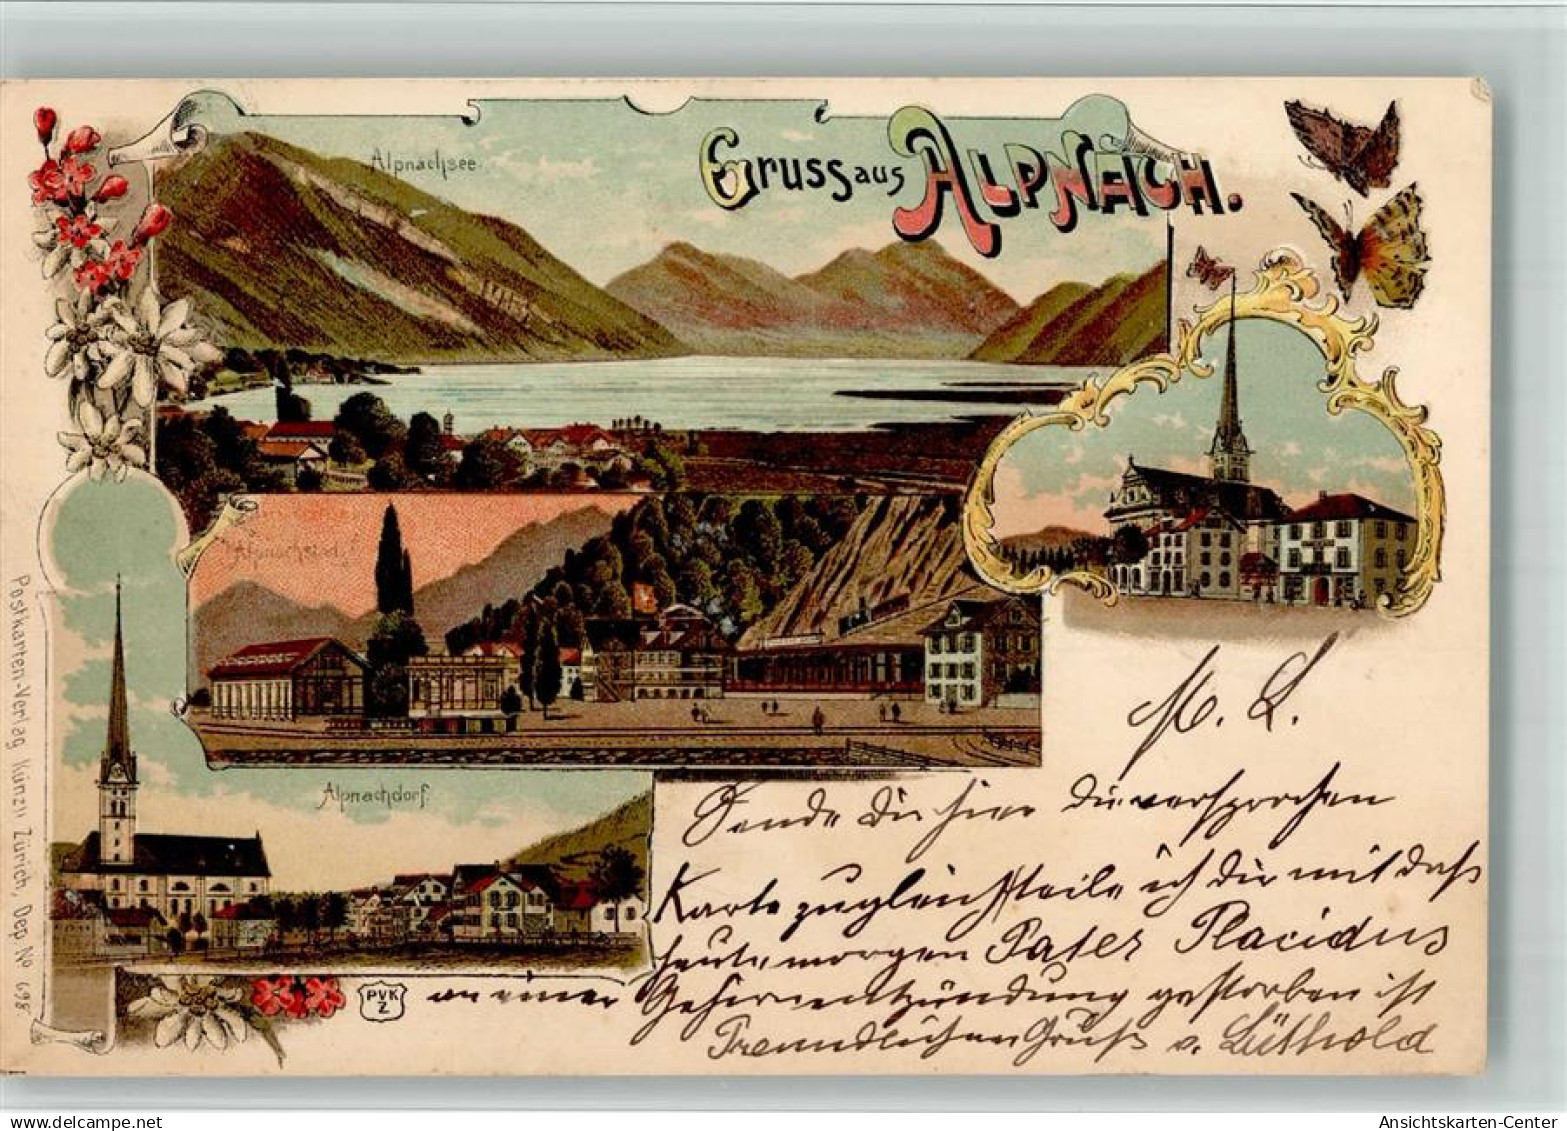 Gruss aus ALPNACH.
Alpnachsee.
Alpnachstad.
Alpnachdorf.
Postkarten-Verlag Künzli Zürich, Dep. No 698
PVK
Z
M. L.
Sende dir hier die versprochen
Karte zugleich theile ich dir mit daß
heute morgen Pater Placidus
an einer Gehirnentzündung gestorben ist
Freundlichen Gruß v. Lüthold
delcampe.net
Ansichtskarten-Center